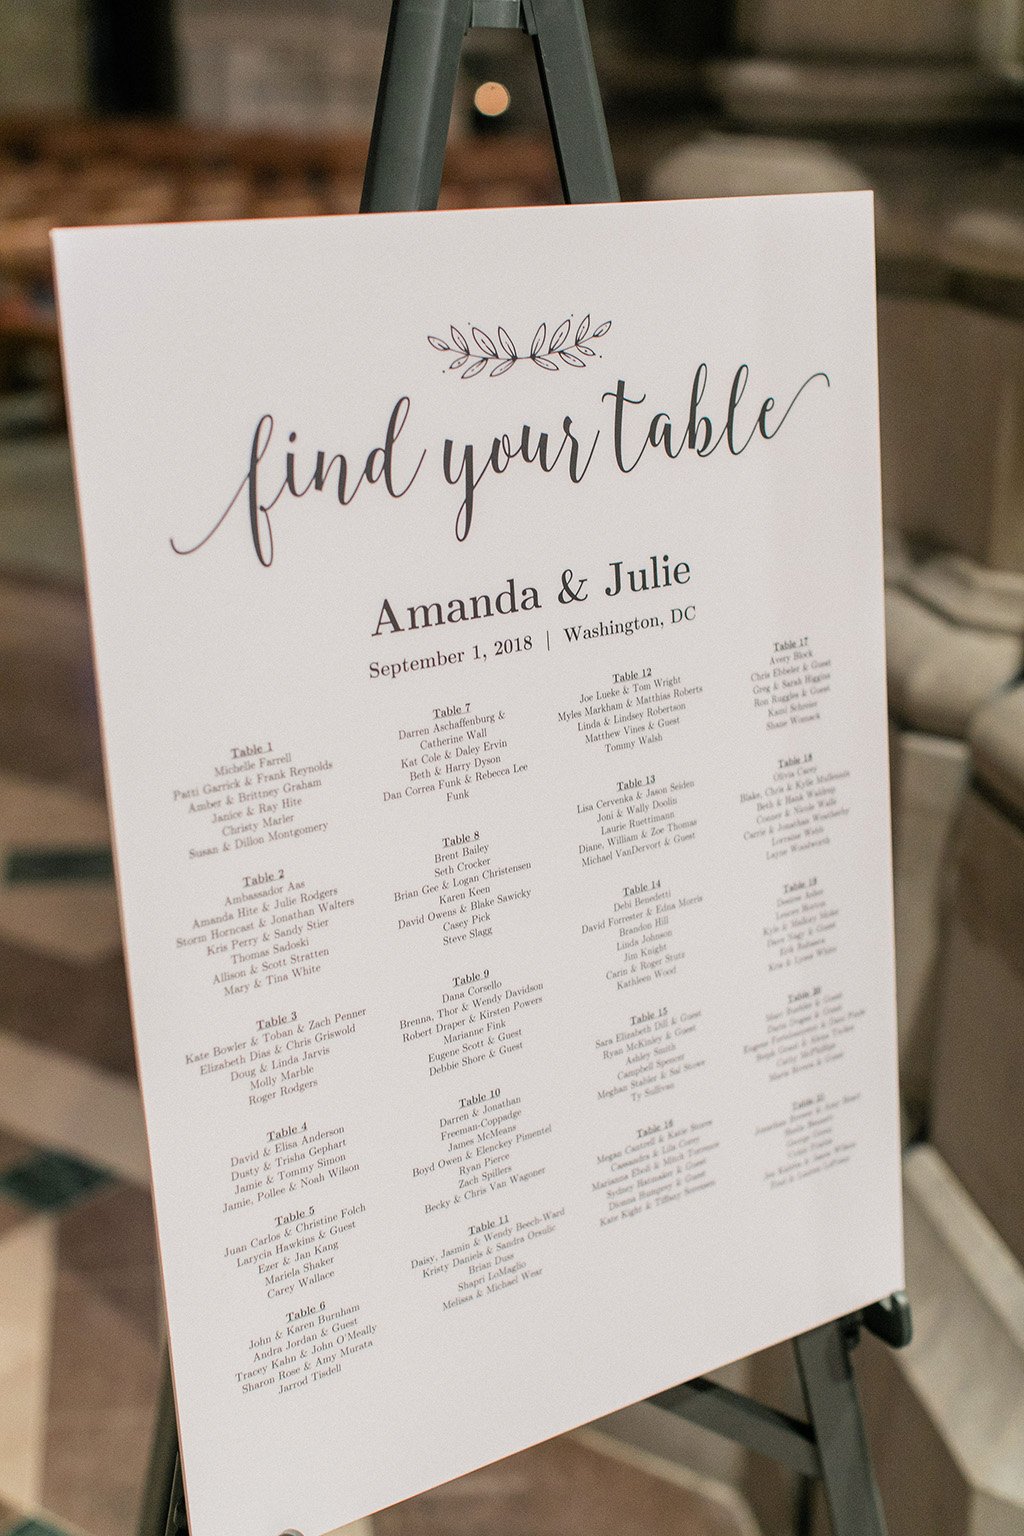 find your table
Amanda & Julie
September 1, 2018 | Washington, DC
Table 1
Michelle Farrell
Patti Garrick & Frank Reynolds
Amber & Brittney Graham
Janice & Ray Hite
Christy Marler
Susan & Dillon Montgomery
Table 2
Ambassador Aas
Amanda Hite & Julie Rodgers
Storm Horncast & Jonathan Walters
Kris Perry & Sandy Stier
Thomas Sadoski
Allison & Scott Stratten
Mary & Tina White
Table 3
Kate Bowler & Toban & Zach Penner
Elizabeth Dias & Chris Griswold
Doug & Linda Jarvis
Molly Marble
Roger Rodgers
Table 4
David & Elisa Anderson
Dusty & Trisha Gephart
Jamie & Tommy Simon
Jamie, Pollee & Noah Wilson
Table 5
Juan Carlos & Christine Folch
Larycia Hawkins & Guest
Ezer & Jan Kang
Mariela Shaker
Carey Wallace
Table 6
John & Karen Burnham
Andra Jordan & Guest
Tracey Kahn & John O'Meally
Sharon Rose & Amy Murata
Jarrod Tisdell
Table 7
Darren Aschaffenburg &
Catherine Wall
Kat Cole & Daley Ervin
Beth & Harry Dyson
Dan Correa Funk & Rebecca Lee
Funk
Table 8
Brent Bailey
Seth Crocker
Brian Gee & Logan Christensen
Karen Keen
David Owens & Blake Sawicky
Casey Pick
Steve Slagg
Table 9
Dana Corsello
Brenna, Thor & Wendy Davidson
Robert Draper & Kirsten Powers
Marianne Fink
Eugene Scott & Guest
Debbie Shore & Guest
Table 10
Darren & Jonathan
Freeman-Coppadge
James McMeans
Boyd Owen & Elenckey Pimentel
Ryan Pierce
Zach Spillers
Becky & Chris Van Wagoner
Table 11
Daisy, Jasmin & Wendy Beech-Ward
Kristy Daniels & Sandra Orsulic
Brian Duss
Shapri LoMaglio
Melissa & Michael Wear
Table 12
Joe Lueke & Tom Wright
Myles Markham & Matthias Roberts
Linda & Lindsey Robertson
Matthew Vines & Guest
Tommy Walsh
Table 13
Lisa Cervenka & Jason Seiden
Joni & Wally Doolin
Laurie Ruettimann
Diane, William & Zoe Thomas
Michael VanDervort & Guest
Table 14
Debi Benedetti
David Forrester & Edna Morris
Brandon Hill
Linda Johnson
Jim Knight
Carin & Roger Stutz
Kathleen Wood
Table 15
Sara Elizabeth Dill & Guest
Ryan McKinley & Guest
Ashley Smith
Campbell Spencer
Meghan Stabler & Sal Stowe
Ty Sullivan
Table 16
Megan Cantrell & Katie Stores
Cassandra & Lila Corey
Marianna Eboli & Mitch Turmore
Sydney Hatmaker & Guest
Dionna Humprey & Guest
Kate Kight & Tiffany Sorensen
Table 17
Avery Block
Chris Ebbeler & Guest
Greg & Sarah Higgins
Ron Ruggles & Guest
Kami Scheier
Shane Womack
Table 18
Olivia Carey
Blake, Chris & Kyle
Beth & Hank Waldrop
Conner & Nicole Walls
Carrie & Jonathan Weatherby
Lorraine Webb
Layne Woolworth
Table 19
Table 20